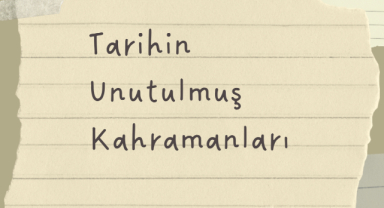 Tarihin
Unutulmuş
Kahramanları